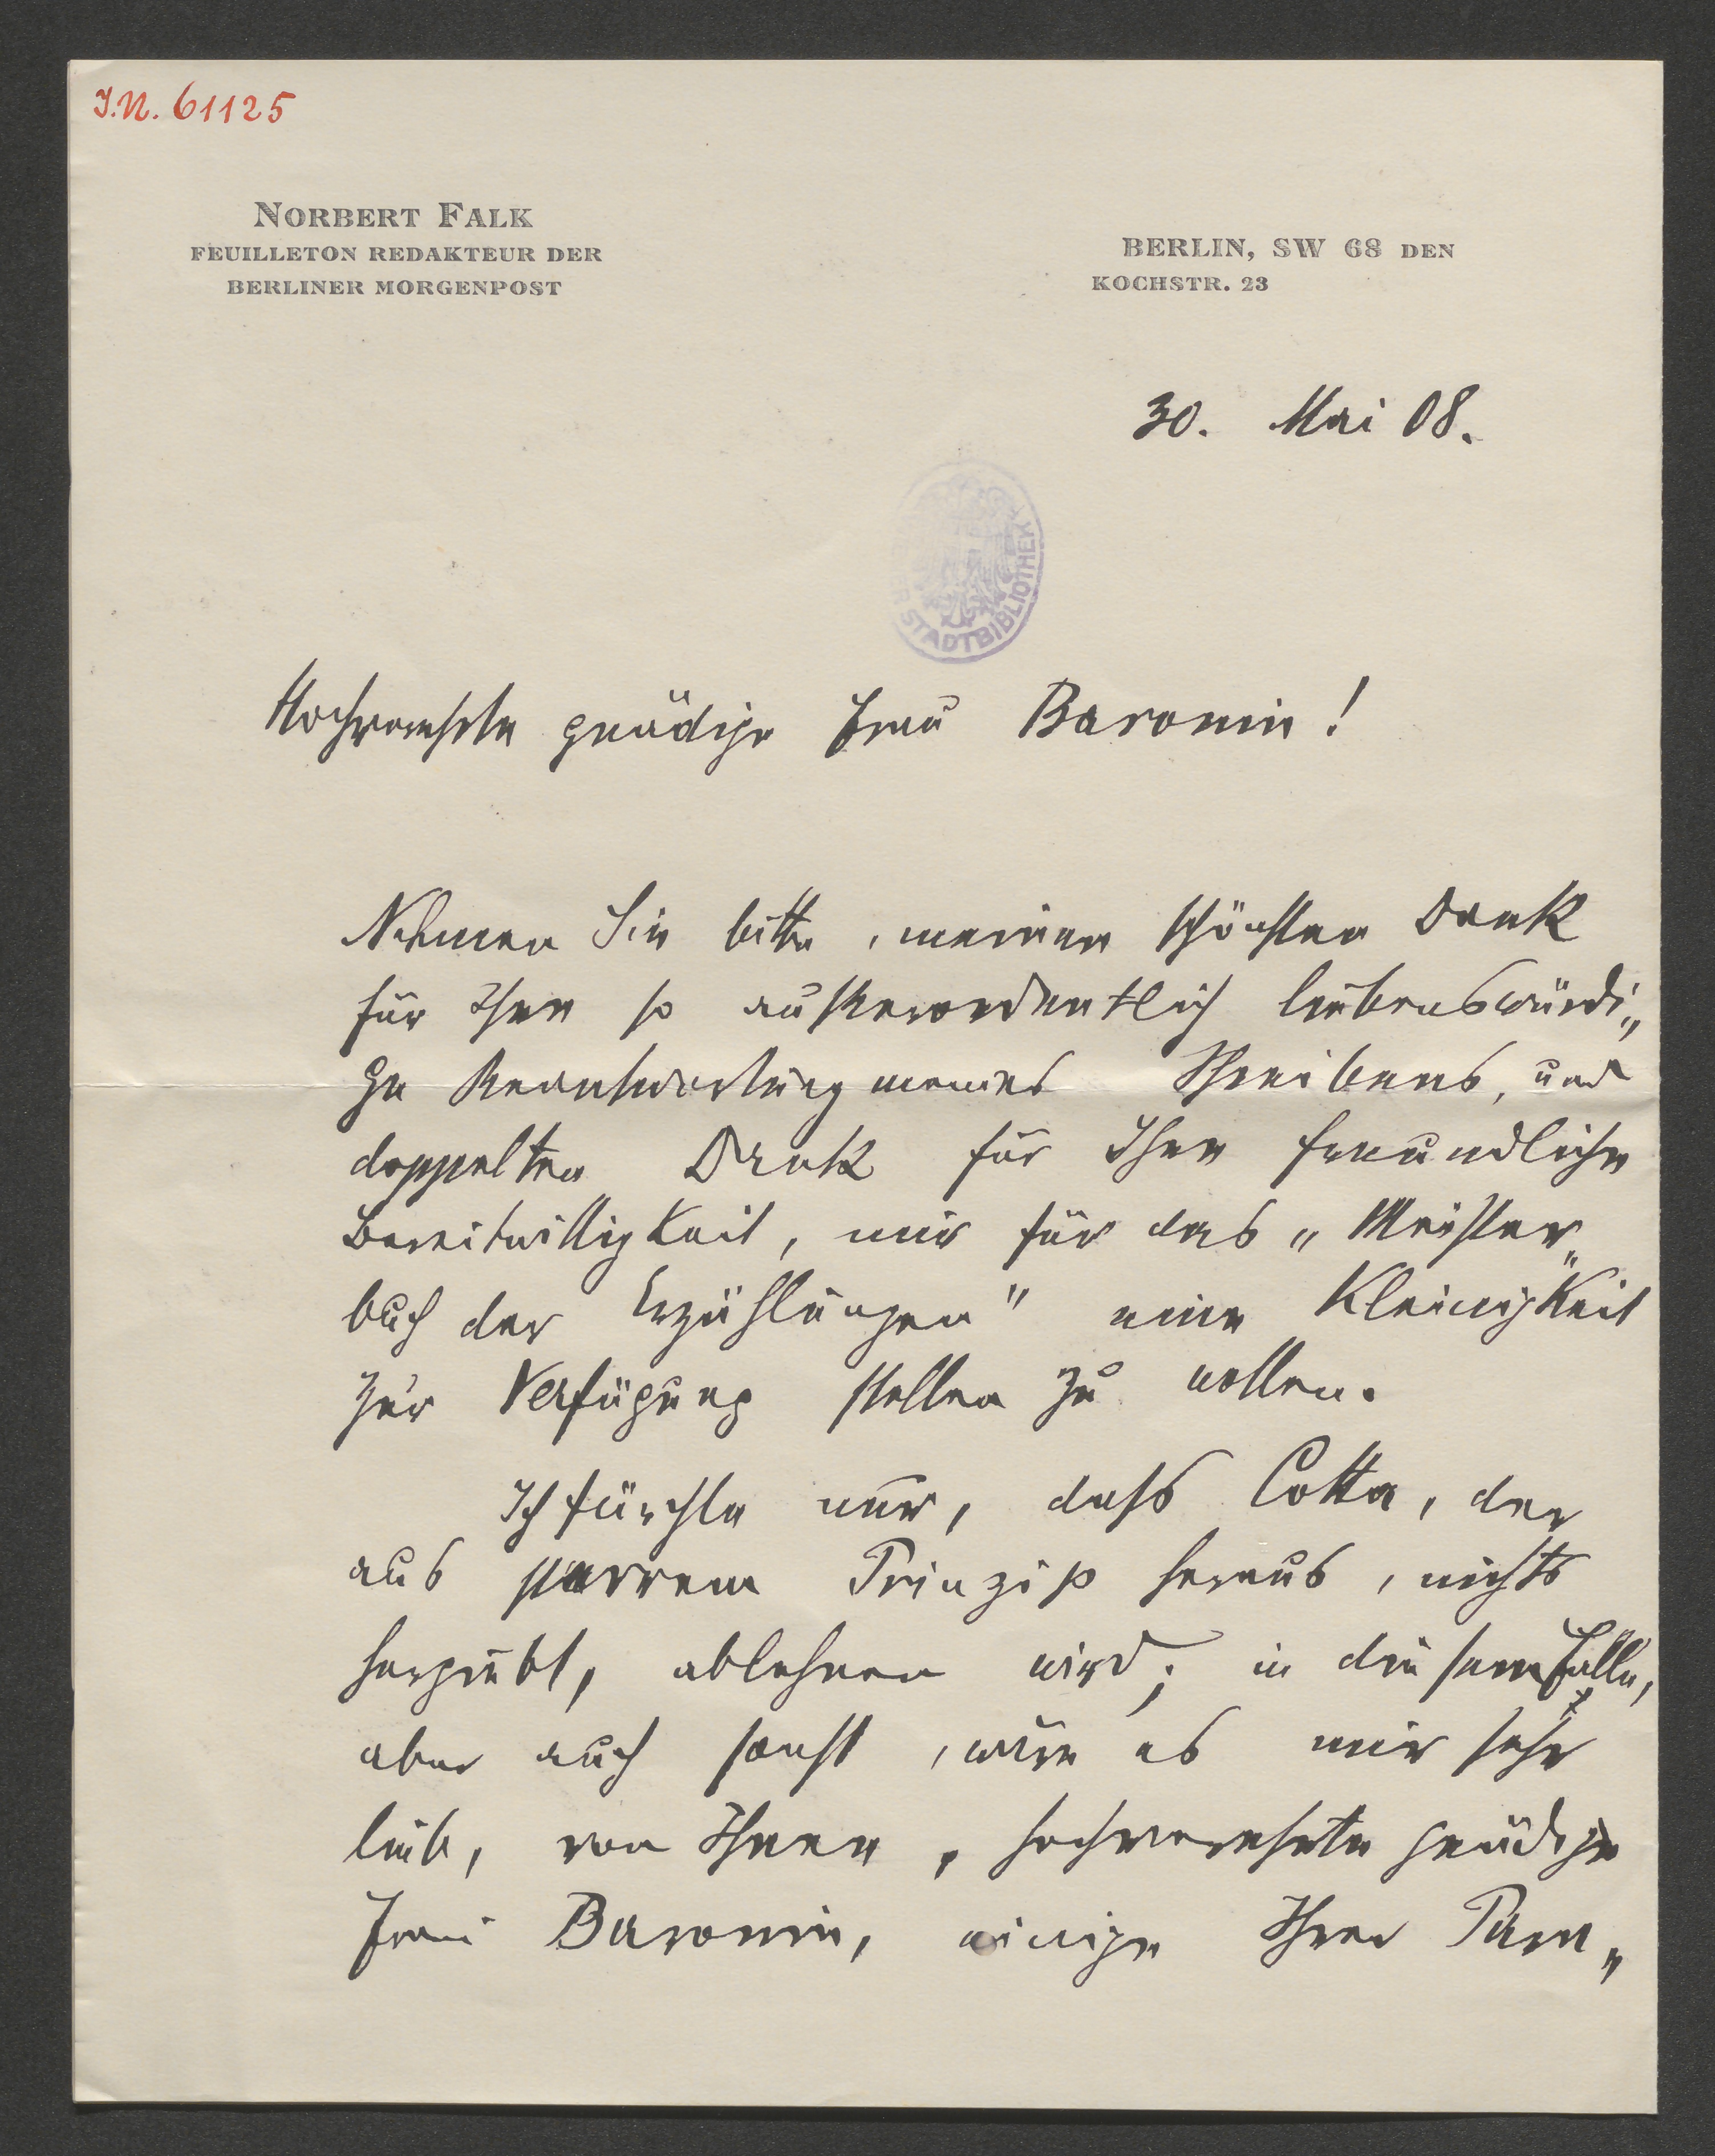 I.N. 61125
NORBERT FALK
FEUILLETON REDAKTEUR DER
BERLINER MORGENPOST
BERLIN, SW 68 DEN
KOCHSTR. 23
30. Mai 08.
STADTBIBLIOTHEK
Hochverehrte gnädige Frau Baronin!
Nehmen Sie bitte, meinen schönsten Dank
für Ihre so außerordentlich liebenswürdi„
ge Beantwortung meines Schreibens, und
doppelten Dank für Ihre freundliche
Bereitwilligkeit, mir für das „Meister„
buch der Erzählungen" eine Kleinigkeit
zur Verfügung stellen zu wollen.
Ich fürchte nur, dass Cotta, der
aus starrem Prinzip heraus, nichts
hergiebt, ablehnen wird; in diesem Falle,
aber auch sonst, wäre es mir sehr
lieb, von Ihnen, hochverehrte gnädige
Frau Baronin, einige Ihrer Para„